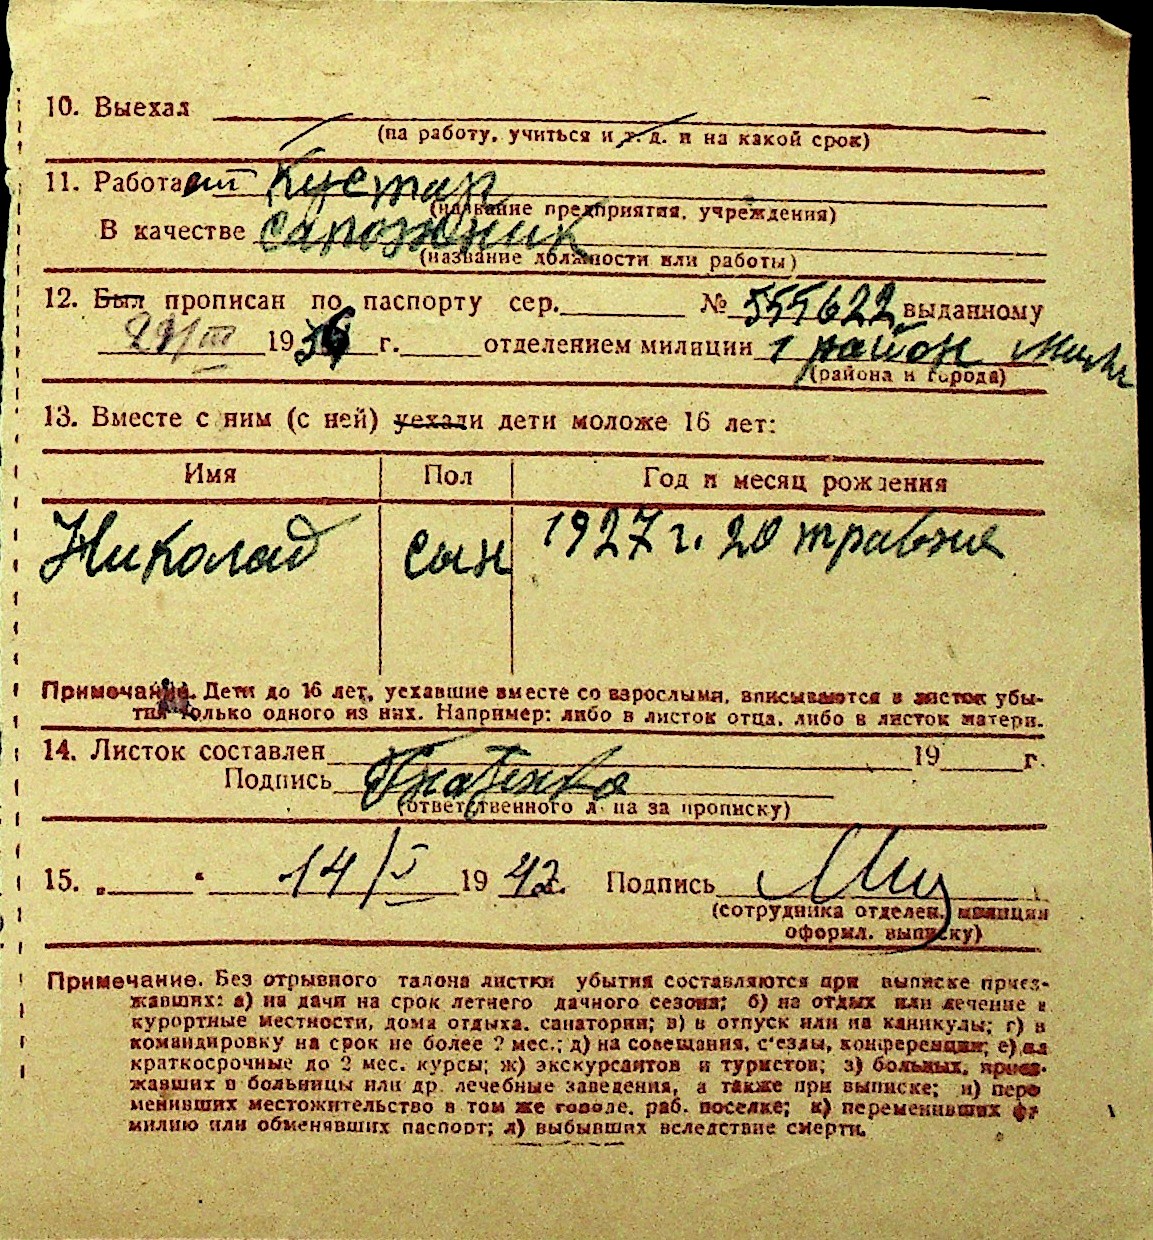 10. Выехал
(на работу, учиться и т. д. и на какой срок)
11. Работает Кустар
(название предприятия, учреждения)
В качестве сапожник
(название должности или работы)
12. Был прописан по паспорту сер. № 555622 выданному
29/III 1936 г. отделением милиции 1 район
(района и города)
13. Вместе с ним (с ней) уехали дети моложе 16 лет:
Имя Пол Год и месяц рождения
Николай сын 1927 г. 20 травня
Примечание. Дети до 16 лет, уехавшие вместе со взрослыми, вписываются в листок убы-
тия только одного из них. Например: либо в листок отца, либо в листок матери.
14. Листок составлен 19 г.
Подпись
(ответственного лица за прописку)
15. „ “ 14/I 1942. Подпись
(сотрудника отделен. милиции
оформл. выписку)
Примечание. Без отрывного талона листки убытия составляются при выписке приез-
жавших: а) на дачи на срок летнего дачного сезона; б) на отдых или лечение в
курортные местности, дома отдыха, санатории; в) в отпуск или на каникулы; г) в
командировку на срок не более 2 мес.; д) на совещания, с'езды, конференции; е) на
краткосрочные до 2 мес. курсы; ж) экскурсантов и туристов; з) больных, приез-
жавших в больницы или др. лечебные заведения, а также при выписке; и) пере
менивших местожительство в том же городе, раб. поселке; к) переменивших фа
милию или обменявших паспорт; л) выбывших вследствие смерти.